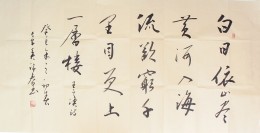 白日依山尽
黄河入海
流欲穷千
里目更上
一层楼 王之涣诗